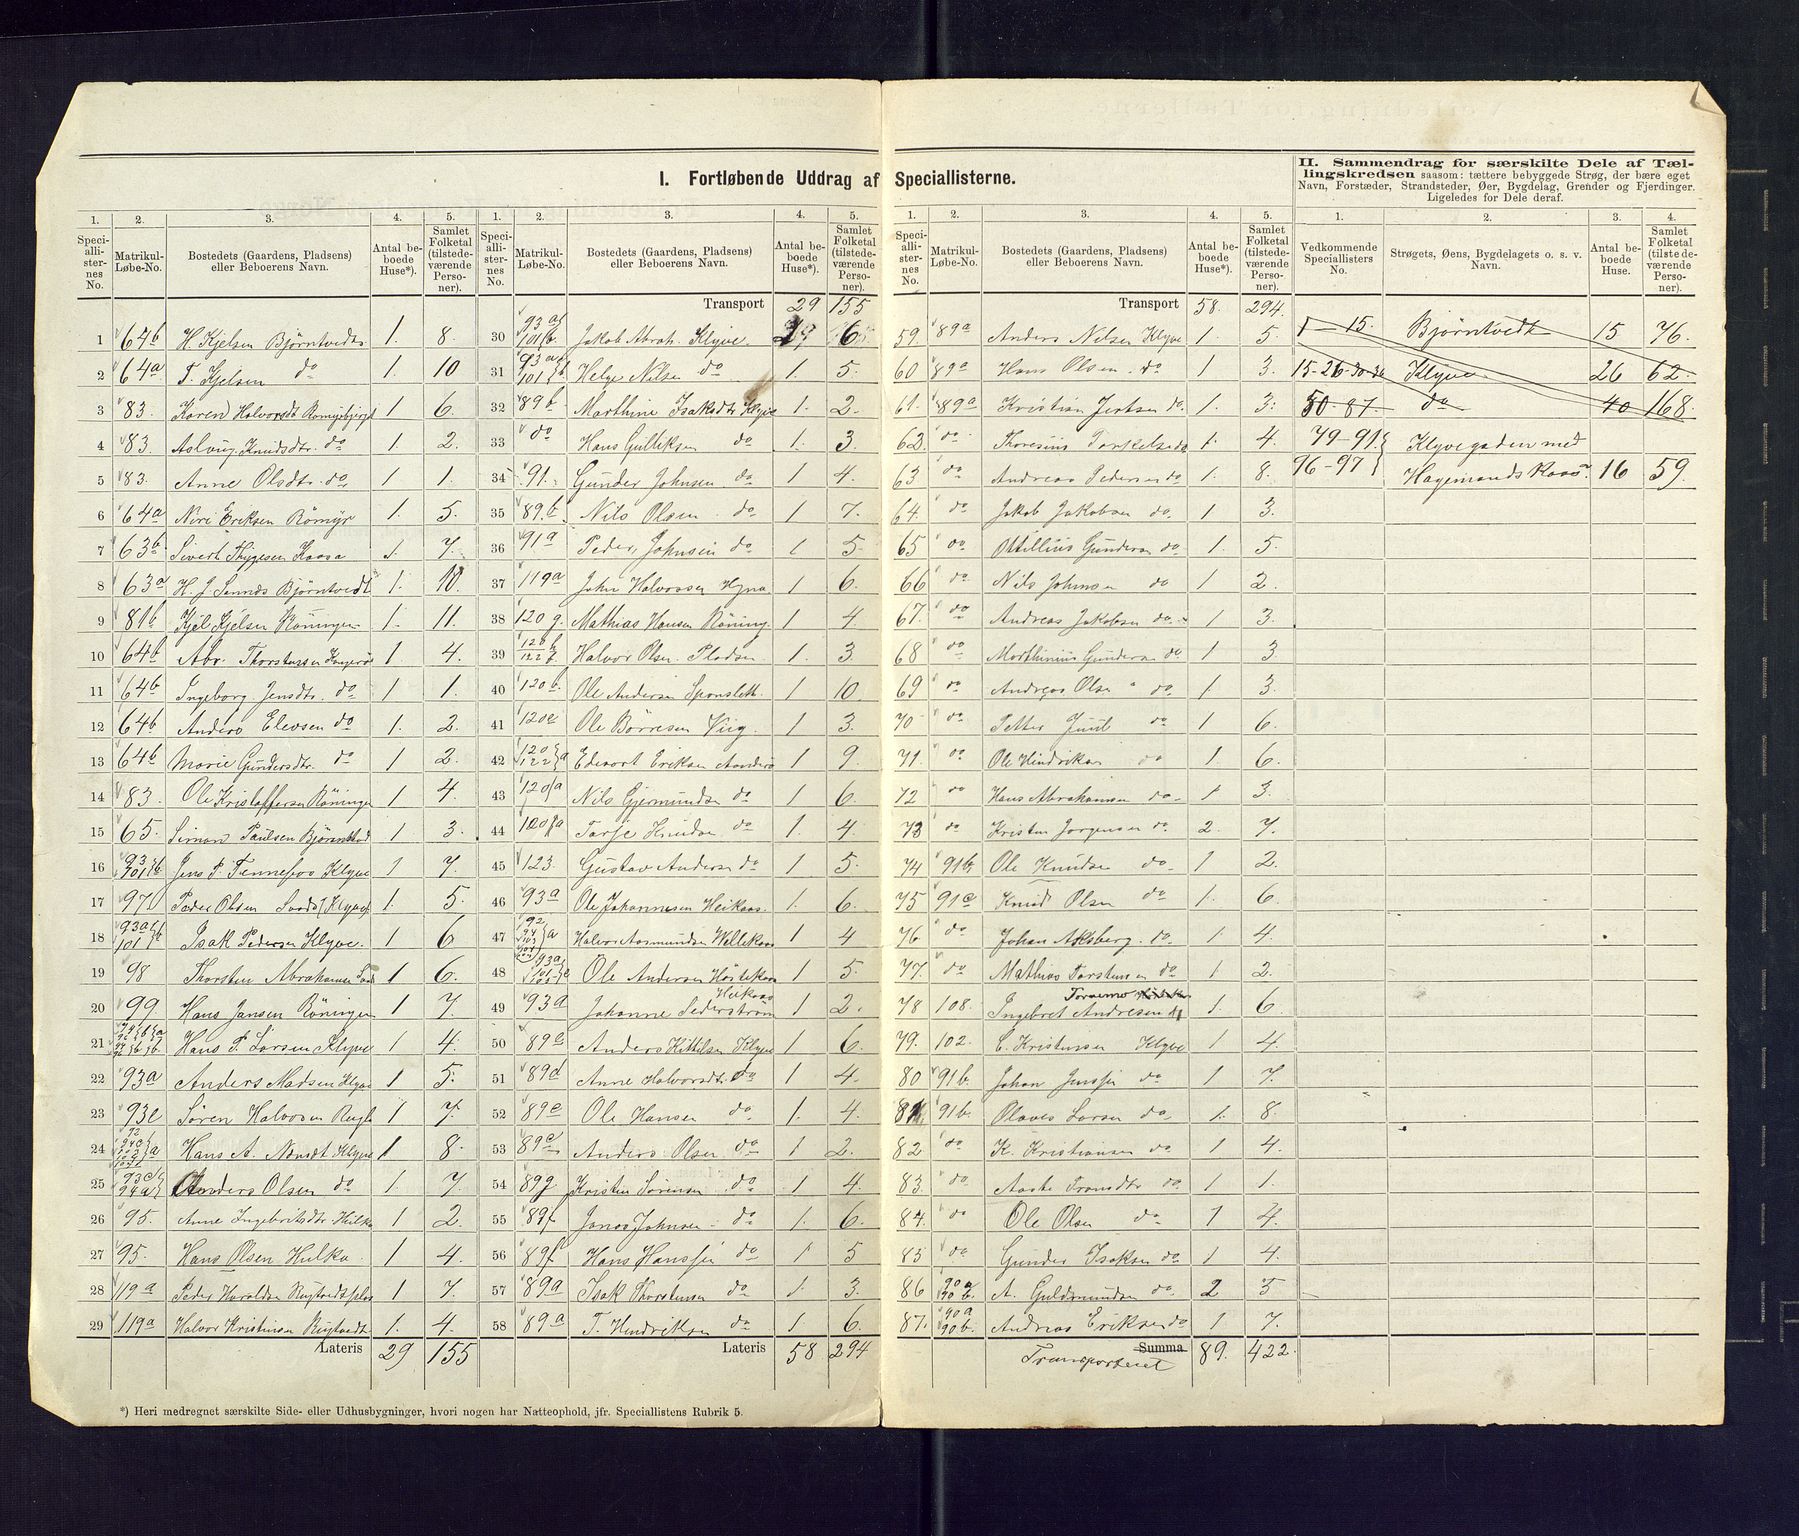 I. Fortløbende Uddrag af Speciallisterne.
II. Sammendrag for særskilte Dele af Tæl-
lingskredsen saasom: tættere bebyggede Strøg, der bære eget
Navn, Forstæder, Strandsteder, Øer, Bygdelag, Grender og Fjerdinger.
Ligeledes for Dele deraf.
1. 2. 3. 4. 5.
Speciallisternes No. Matrikul-Løbe-No. Bostedets (Gaardens, Pladsens) eller Beboerens Navn. Antal beboede Huse*). Samlet Folketal (tilstedeværende Personer).
1 64b H. Kjelsen Bjørntvedt 1. 8.
2 64a T. Kjelsen do 1. 10
3 83. Karen Halvorsdt 1 6.
4 83. Aslaug Knudsdtr. do 1 2.
5 83. Anne Olsdtr. do 1 1.
6 64a Niri Eriksen Römyr 1. 5.
7 63b Sivert Thygesen Kaasa 1. 7.
8 63a H. J. Sannes Bjørntvedt 1. 10.
9 81b Kjel Kjelsen Röningen 1. 11.
10 64b Abr. Thorstensen 1 4.
11 64b Ingeborg Jensdtr. do 1 1.
12 64b Anders Elevsen do 1. 2.
13 64b Marie Gundersdtr. do 1 2.
14 83. Ole Kristoffersen Röningen 1 4.
15 65. Simon Paulsen 1 3.
16 93 101 b Jens P. Tennefos Klyve 1 7.
17 97 Peder Olsen Klyve 1. 5.
18 93a 101 b Isak Pedersen Klyve. 1 6
19 98 Thorsten Abrahamse 1 6.
20 99 Hans Jansen Röningen 1 7.
21 Hans P. Larsen Klyve 1 4.
22 93a Anders Madsen Klyve 1 5.
23 93e Sören Halvorsen 1 7.
24 Hans A. Klyve 1 8.
25 93c 94a Anders Olsen do 1. 7.
26 95. Anne Ingebritsdtr 1 2.
27 95. Hans Olsen Hulka 1 4.
28 119a Peder Haraldsen 1 7.
29 119a Halvor Kristensen 1. 4.
Lateris 29 155
*) Heri medregnet særskilte Side- eller Udhusbygninger, hvori nogen har Natteophold, jfr. Speciallistens Rubrik 5.
1. 2. 3. 4. 5.
Speciallisternes No. Matrikul-Løbe-No. Bostedets (Gaardens, Pladsens) eller Beboerens Navn. Antal beboede Huse*). Samlet Folketal (tilstedeværende Personer).
Transport 29 155
30 93a 101b Jakob Abrah. Klyve. 6
31 93a 101 b Helge Nilsen do 1. 5.
32 89b Marthine Isaksdtr Klyve 1. 2.
33 do Hans Gulliksen do 1. 3.
34 91. Gunder Johnsen do 1 4.
35 89.b. Nils Olsen do 1 7.
36 91a Peder Johnsen do 1 5.
37 119a John Halvorsen 1 6.
38 120 g. Mathias Hansen Röning. 1 4
39 Halvor Olsen Pladsen 1. 3.
40 120b Ole Andersen 1 10.
41 120e Ole Börresen Viig 1 3.
42 120 122 a Edvart Eriksen 1 9.
43 120/a Nils Gjermundsen do 1 6.
44 120/a Tarje Knudsen do 1. 4.
45 123. Gustav Andersen do 1 5.
46 93a Ole Johannesen Heikaas. 1. 6.
47 Halvor Aasmundsen 1 4
48 Ole Andersen 1 5.
49 93a Johanne Sederström Heikaas 1 2.
50 89c Anders Kittilsen Klyve 1 6.
51 89d Anne Halvorsdt. do 1 4.
52 89e Ole Hansen do 1. 4.
53 89e Anders Olsen do. 1 2.
54 89g. Kristen Sörensen do. 1 4.
55 89f Jonas Johnsen do 1. 6.
56 89f Hans Hanssen do 1 5
57 89a Isak Thorstensen do 1. 3.
58 89a T. Hendriksen do 1. 6.
Lateris 58 294
1. 2. 3. 4. 5.
Speciallisternes No. Matrikul-Løbe-No. Bostedets (Gaardens, Pladsens) eller Beboerens Navn. Antal beboede Huse*). Samlet Folketal (tilstedeværende Personer).
Transport 58. 294.
59. 89a Anders Nilsen Klyve 1 5.
60 89a Hans Olsen do 1 3.
61. 89a Kristian Jertsen do. 1. 3.
62. do Thoresius Torkelsen do 1. 4.
63 do Andreas Pedersen do 1. 8.
64. do Jakob Jakobsen do. 1 3.
65 do Ottilius Gundersen do 1. 5.
66 do Nils Johnsen do 1 2.
67. do Andreas Jakobsen do. 1 3.
68 do Marthinius Gundersen do 1 3.
69 do Andreas Olsen do. 1. 3.
70 do Petter Juul do 1 6.
71. do Ole Hindriksen do 1. 6.
72 do Hans Abrahamsen do 1 3.
73 do Kristen Jörgensen do 2. 7.
74 91b Ole Knudsen do 1 2.
75 91c Knud Olsen do 1 6.
76 do Johan Aksberg. do. 1. 4.
77. do Mathias Torstensen do 1 2.
78 108. Ingebret Andresen 1. 6.
79. 102. C. Kristensen Klyve 1 4.
80 91b. Johan do 1 7.
81. 91b. Olaves Larsen do 1. 8.
82 do K. Kristiansen do 1 4.
83. do Aaste do 1 1.
84. do Ole Olsen do 1 4.
85 do Gunder Isaksen do 1 4.
86 90a 90b. A. Guldmundsen do 2 5
87. 90a 90b. Andreas Eriksen do 1 7.
Summa
Transporteret 89. 422.
1. 2. 3. 4.
Vedkommende Speciallisters No. Strøgets, Øens, Bygdelagets o. s. v. Navn. Antal beboede Huse. Samlet Folketal (tilstedeværende Personer).
1 - 15. Bjørntvedt 15. 76.
15-26-30-36 Klyve 26 62.
50-87. do 40 168.
79-91 Klyvegaden med
96-97 Hagemandskaas 16 59.